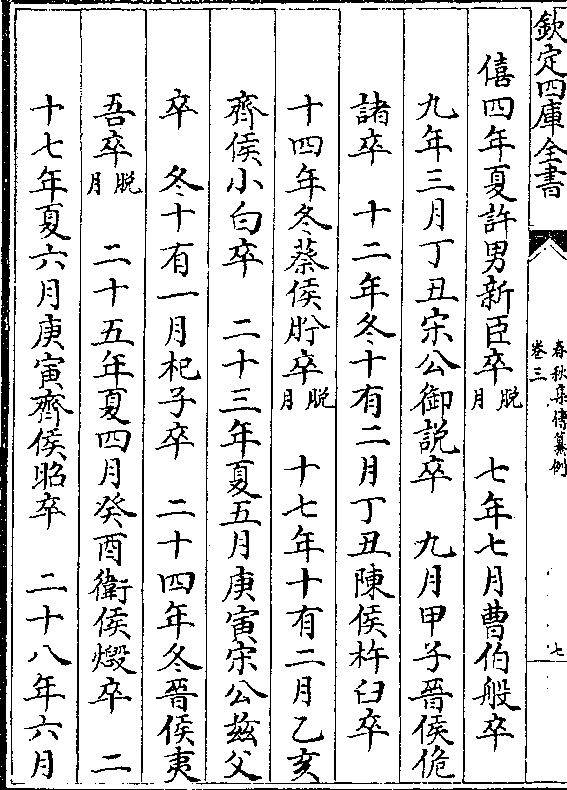 欽定四庫全書
春秋集傳纂例
卷三
七
僖四年夏許男新臣卒脱月 七年七月曹伯般卒
九年三月丁丑宋公御説卒 九月甲子晉侯佹
諸卒 十二年冬十有二月丁丑陳侯杵臼卒
十四年冬蔡侯肸卒脱月 十七年十有二月乙亥
齊侯小白卒 二十三年夏五月庚寅宋公兹父
卒 冬十有一月杞子卒 二十四年冬晉侯夷
吾卒脱月 二十五年夏四月癸酉衛侯燬卒 二
十七年夏六月庚寅齊侯昭卒 二十八年六月